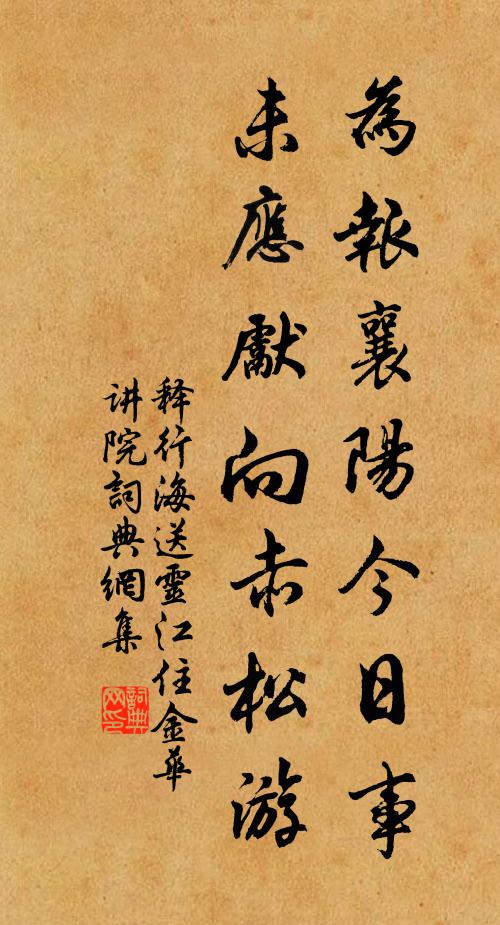 為報襄陽今日事
未應獻向赤松游
释行海送靈江住金華
讲院詞典網集
詞典
网印